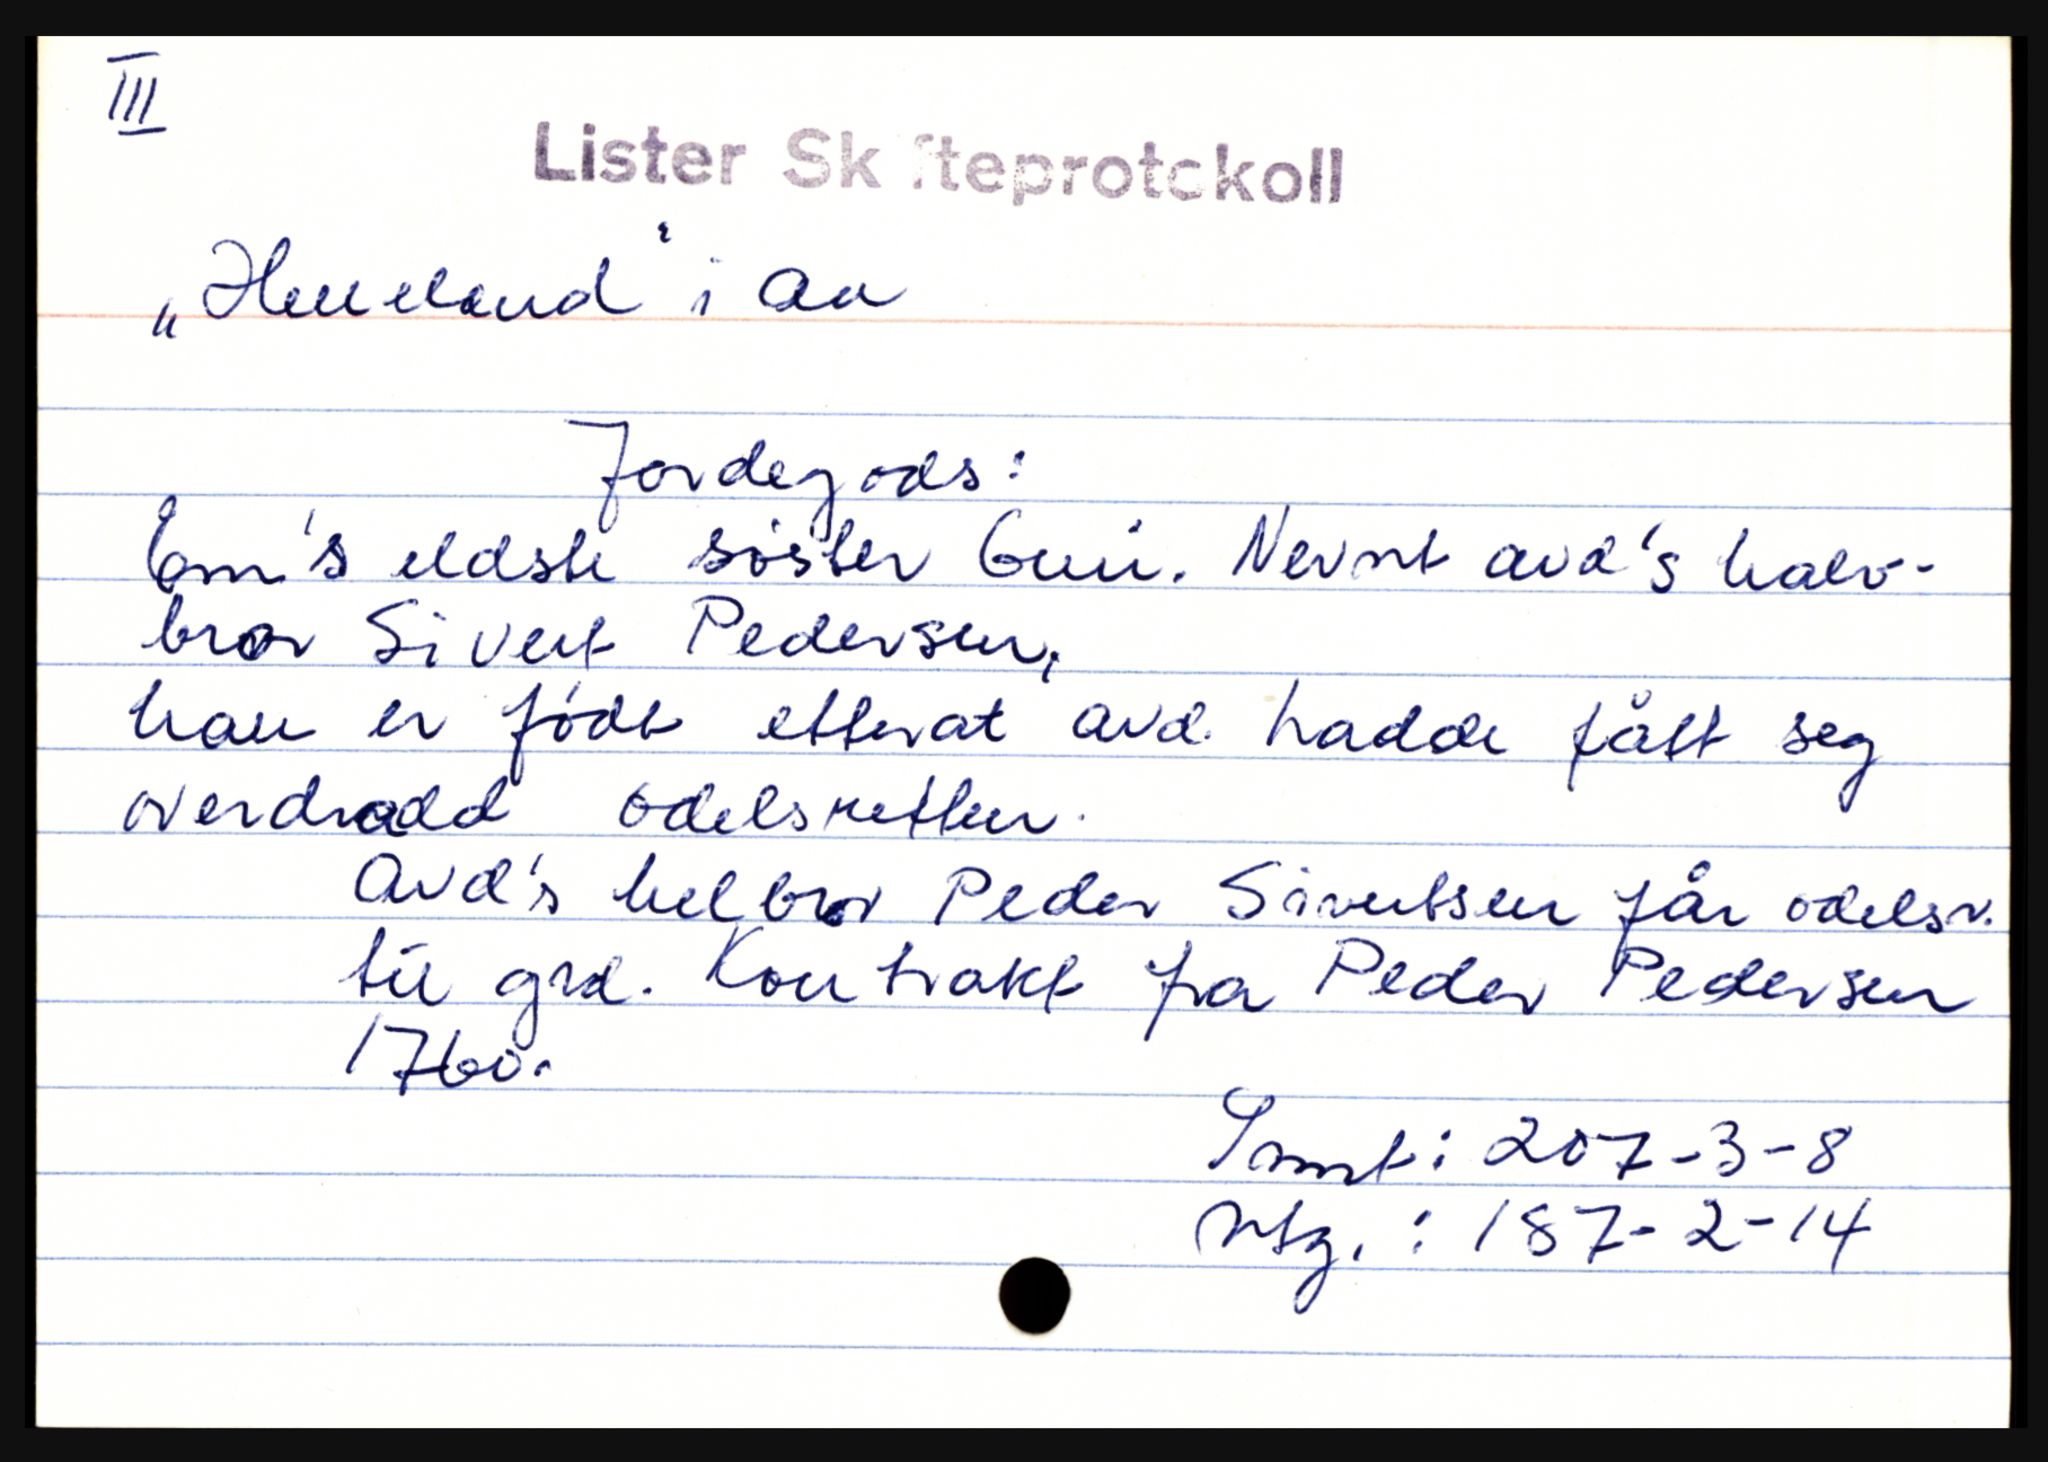 III
Lister Sk fteprotokoll
„Helleland" i Aa
Jordegods:
Em's eldste søster Guri. Nevnt avd's halv-
bror Sivert Pedersen,
han er født etterat avd. hadde fått seg
overdradd odelsretten.
Avd's helbror Peder Sivertsen får odelsr.
til grd. Kontrakt fra Peder Pedersen
1760.
Smt: 207-3-8
Ntg.: 187-2-14